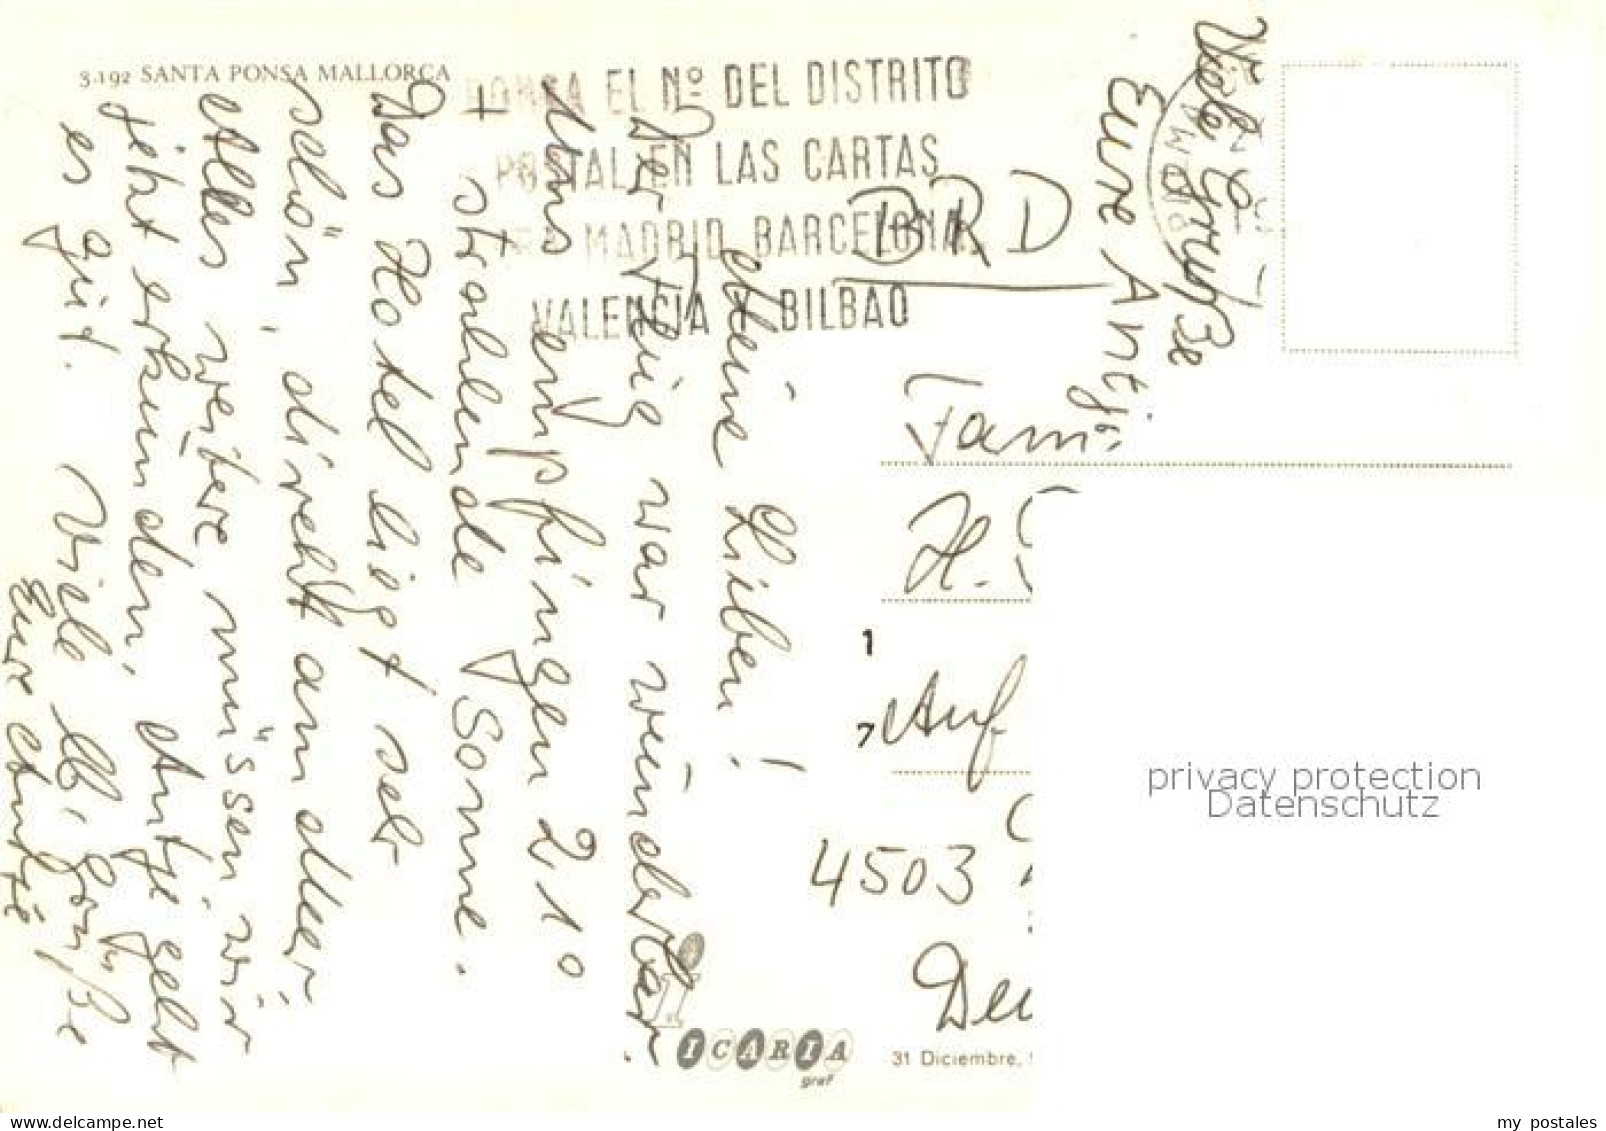 3-192 SANTA PONSA MALLORCA
PONGA EL Nº DEL DISTRITO
POSTAL EN LAS CARTAS
PARA MADRID BARCELONA
VALENCIA Y BILBAO
Meine Lieben!
Der Flug war wunderbar.
Uns empfingen 21°
+ strahlende Sonne.
Das Hotel liegt sehr
schön, direkt am Meer,
alles weitere müssen wir
jetzt erkunden. Antje geht
es gut. Viele lb. Grüße
Eure Antje
Viele Grüße
Eure Antje
BRD
Fam
H.
1
7
Auf
4503
Deu
ICARIA
graf
31 Diciembre,
privacy protection
Datenschutz
my postales